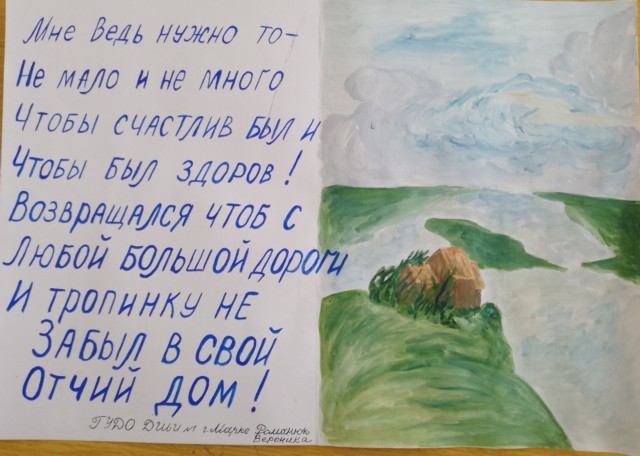 Мне ведь нужно то-
Не мало и не много
Чтобы счастлив был и
Чтобы был здоров!
Возвращался чтоб с
Любой большой дороги
И тропинку не
Забыл в свой
Отчий дом!
ГУДО г. Романюк
Вероника